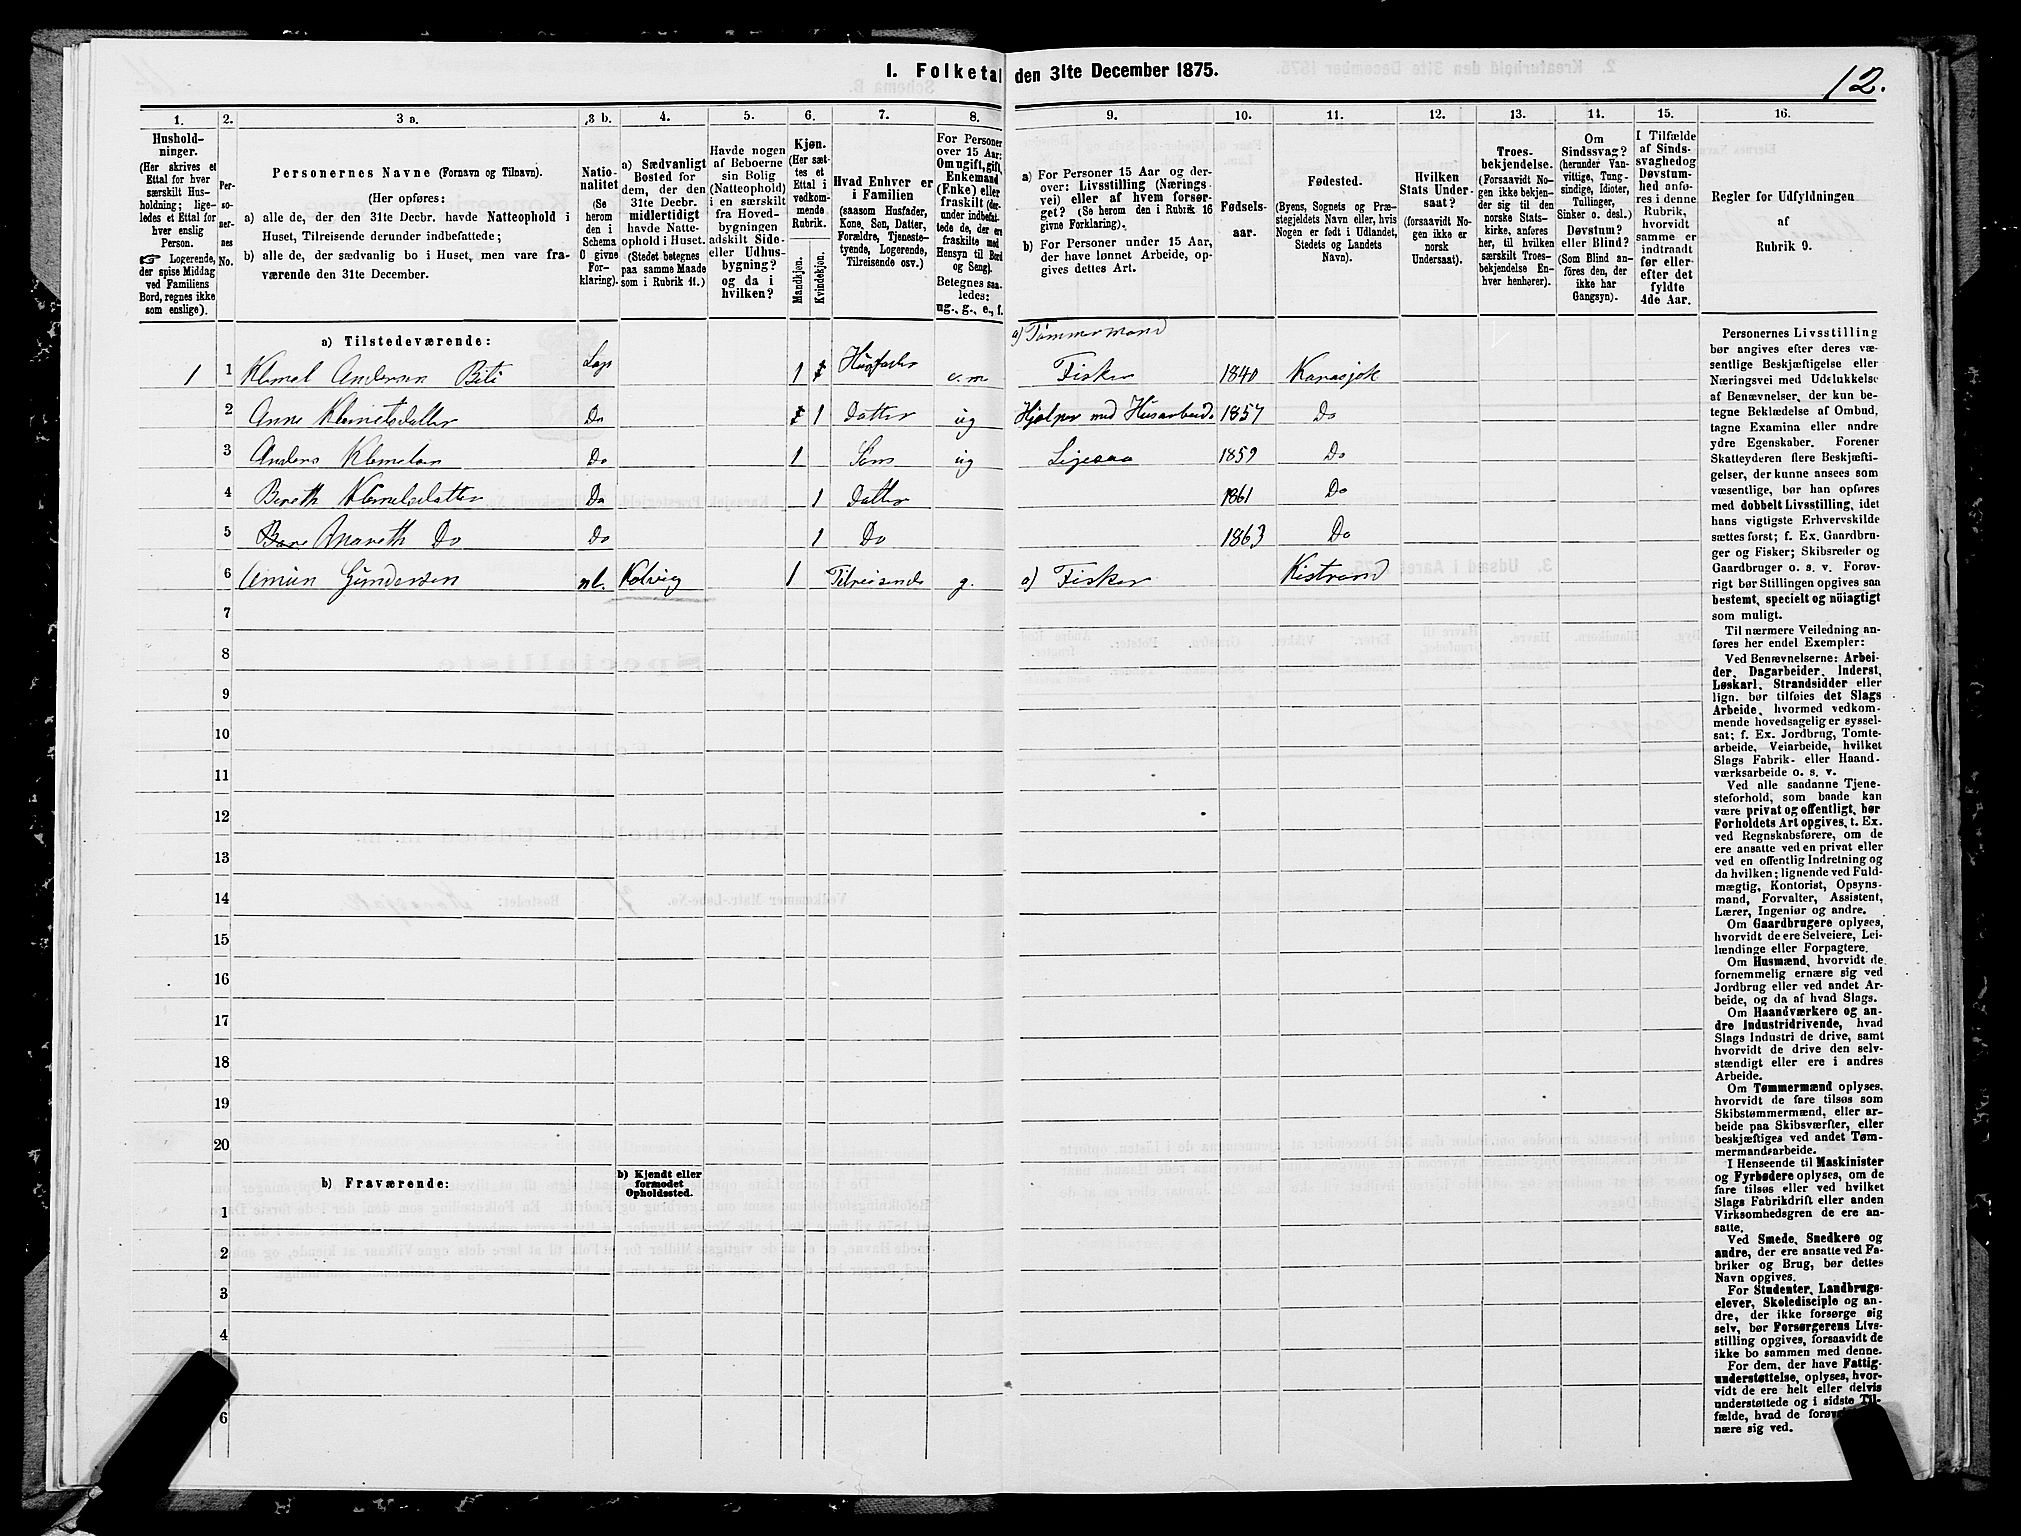 I. Folketal den 31te December 1875.
12.
1.
Hushold-
ninger.
(Her skrives et
Ettal for hver
særskilt Hus-
holdning; lige-
ledes et Ettal for
hver enslig
Person.
☞ Logerende,
der spise Middag
ved Familiens
Bord, regnes ikke
som enslige).
2.
Per-
so-
ner-
nes
No.
3 a.
Personernes Navne (Fornavn og Tilnavn).
(Her opføres:
a) alle de, der den 31te Decbr. havde Natteophold i
Huset, Tilreisende derunder indbefattede;
b) alle de, der sædvanlig bo i Huset, men vare fra-
værende den 31te December.
3 b.
Natio-
nalitet
(Se
herom
den i
Schema
O givne
For-
klaring).
4.
a) Sædvanligt
Bosted for
dem, der den
31te Decbr.
midlertidigt
havde Natte-
ophold i Huset.
(Stedet betegnes
paa samme Maade
som i Rubrik 11.)
5.
Havde nogen
af Beboerne
sin Bolig
(Natteophold)
i en særskilt
fra Hoved-
bygningen
adskilt Side-
eller Udhus-
bygning?
og da i
hvilken?
6.
Kjøn.
(Her sæt-
tes et
Ettal i
vedkom-
mende
Rubrik.
Mandkjøn.
Kvindekjøn.
7.
Hvad Enhver er
i Familien
(saasom Husfader,
Kone, Søn, Datter,
Forældre, Tjeneste-
tyende, Logerende,
Tilreisende osv.)
8.
For Personer
over 15 Aar:
Om ugift, gift,
Enkemand
(Enke) eller
fraskilt (der-
under indbefat-
tede de, der ere
fraskilte med
Hensyn til Bord
og Seng).
Betegnes saa-
ledes:
ug., g., e., f.
9.
a) For Personer 15 Aar og der-
over: Livsstilling (Nærings-
vei) eller af hvem forsør-
get? (Se herom den i Rubrik 16
givne Forklaring).
b) For Personer under 15 Aar,
der have lønnet Arbeide, op-
gives dettes Art.
10.
Fødsels-
aar.
11.
Fødested.
(Byens, Sognets og Præ-
stegjeldets Navn eller, hvis
Nogen er født i Udlandet,
Stedets og Landets
Navn).
12.
Hvilken
Stats Under-
saat?
(forsaavidt No-
gen ikke er
norsk
Undersaat).
13.
Troes-
bekjendelse.
(Forsaavidt No-
gen ikke bekjen-
der sig til den
norske Stats-
kirke, anføres
her, til hvilken
særskilt Troes-
bekjendelse En-
hver henhører).
14.
Om
Sindssvag?
(herunder Van-
vittige, Tung-
sindige, Idioter,
Tullinger,
Sinker o. desl.)
Døvstum?
eller Blind?
(Som Blind an-
føres den, der
ikke har
Gangsyn).
15.
I Tilfælde
af Sinds-
svaghed og
Døvstum-
hed anfø-
res i denne
Rubrik,
hvorvidt
samme er
indtraadt
før eller
efter det
fyldte
4de Aar.
16.
Regler for Udfyldningen
af
Rubrik 9.
a) Tilstedeværende:
a) Tømmermand
1 1 Klemet Andersen Biti Lap 1 Husfader e.m Fisker 1840 Karasjok
2 Anne Klemetsdatter Do 1 Datter ug Hjelper med Husarbeide 1857 Do
3 Anders Klemetsen Do 1 Søn ug Ligesaa 1859 Do
4 Bereth Klemetsdatter Do 1 Datter 1861 Do
5 Mareth Do Do 1 Do 1863 Do
6 Gundersen nl. Kolvig 1 Tilreisende g. a) Fisker Kistrand
7
8
9
10
11
12
13
14
15
16
17
18
19
20
b) Fraværende:
b) Kjendt eller
formodet
Opholdssted.
1
2
3
4
6
Personernes Livsstilling
bør angives efter deres væ-
sentlige Beskjæftigelse eller
Næringsvei med Udelukkelse
af Benævnelser, der kun be-
tegne Beklædelse af Ombud,
tagne Examina eller andre
ydre Egenskaber. Forener
Skatteyderen flere Beskjæfti-
gelser, der kunne ansees som
væsentlige, bør han opføres
med dobbelt Livsstilling, idet
hans vigtigste Erhvervskilde
sættes først; f. Ex. Gaardbru-
ger og Fisker; Skibsreder og
Gaardbruger o. s. v. Forøv-
rigt bør Stillingen opgives saa
bestemt, specielt og nöiagtigt
som muligt.
Til nærmere Veiledning an-
føres her endel Exempler:
Ved Benævnelserne: Arbei-
der, Dagarbeider, Inderst,
Løskarl, Strandsidder eller
lign. bør tilføies det Slags
Arbeide, hvormed vedkom-
mende hovedsagelig er syssel-
sat; f. Ex. Jordbrug, Tomte-
arbeide, Veiarbeide, hvilket
Slags Fabrik- eller Haand-
værksarbeide o. s. v.
Ved alle saadanne Tjene-
steforhold, som baade kan
være privat og offentligt, bør
Forholdets Art opgives, t. Ex.
ved Regnskabsførere, om de
ere ansatte ved en privat eller
ved en offentlig Indretning og
da hvilken; lignende ved Fuld-
mægtig, Kontorist, Opsyns-
mand, Forvalter, Assistent,
Lærer, Ingeniør og andre.
Om Gaardbrugere oplyses,
hvorvidt de ere Selveiere, Lei-
lændinge eller Forpagtere.
Om Husmænd, hvorvidt de
fornemmelig ernære sig ved
Jordbrug eller ved andet Ar-
beide, og da af hvad Slags.
Om Haandværkere og an-
dre Industridrivende, hvad
Slags Industri de drive, samt
hvorvidt de drive den selv-
stændigt eller ere i andres
Arbeide.
Om Tømmermænd oplyses,
hvorvidt de fare tilsøs som
Skibstømmermænd, eller ar-
beide paa Skibsværfter, eller
beskjæftiges ved andet Tøm-
mermandsarbeide.
I Henseende til Maskinister
og Fyrbødere oplyses, om de
fare tilsøs eller ved hvilket
Slags Fabrikdrift eller anden
Virksomhedsgren de ere an-
satte.
Ved Smede, Snedkere og
andre, der ere ansatte ved Fa-
briker og Brug, bør dettes
Navn opgives.
For Studenter, Landbrugs-
elever, Skoledisciple og an-
dre, der ikke forsørge sig
selv, bør Forsørgerens Livs-
stilling opgives, forsaavidt de
ikke bo sammen med denne.
For dem, der have Fattig-
understøttelse, oplyses, hvor-
vidt de ere helt eller delvis
understøttede og i sidste Til-
fælde, hvad de
nære sig ved.